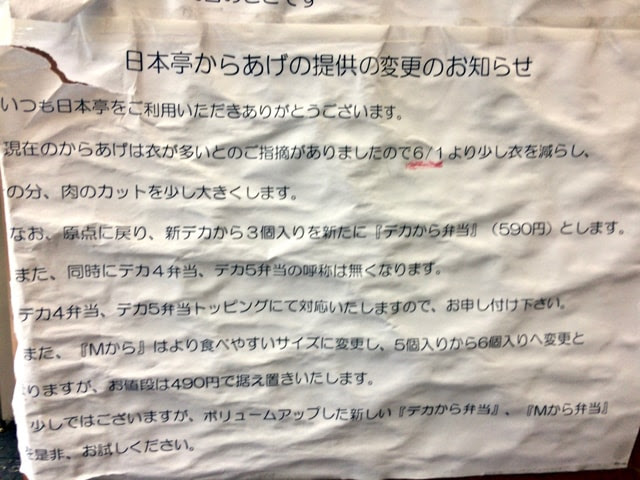 日本亭からあげの提供の変更のお知らせ
いつも日本亭をご利用いただきありがとうございます。
現在のからあげは衣が多いとのご指摘がありましたので6/1より少し衣を減らし、
の分、肉のカットを少し大きくします。
なお、原点に戻り、新デカから3個入りを新たに『デカから弁当』(590円)とします。
また、同時にデカ4弁当、デカ5弁当の呼称は無くなります。
デカ4弁当、デカ5弁当トッピングにて対応いたしますので、お申し付け下さい。
また、『Mから』はより食べやすいサイズに変更し、5個入りから6個入りへ変更と
りますが、お値段は490円で据え置きいたします。
少しではございますが、ボリュームアップした新しい『デカから弁当』、『Mから弁当』
を是非、お試しください。